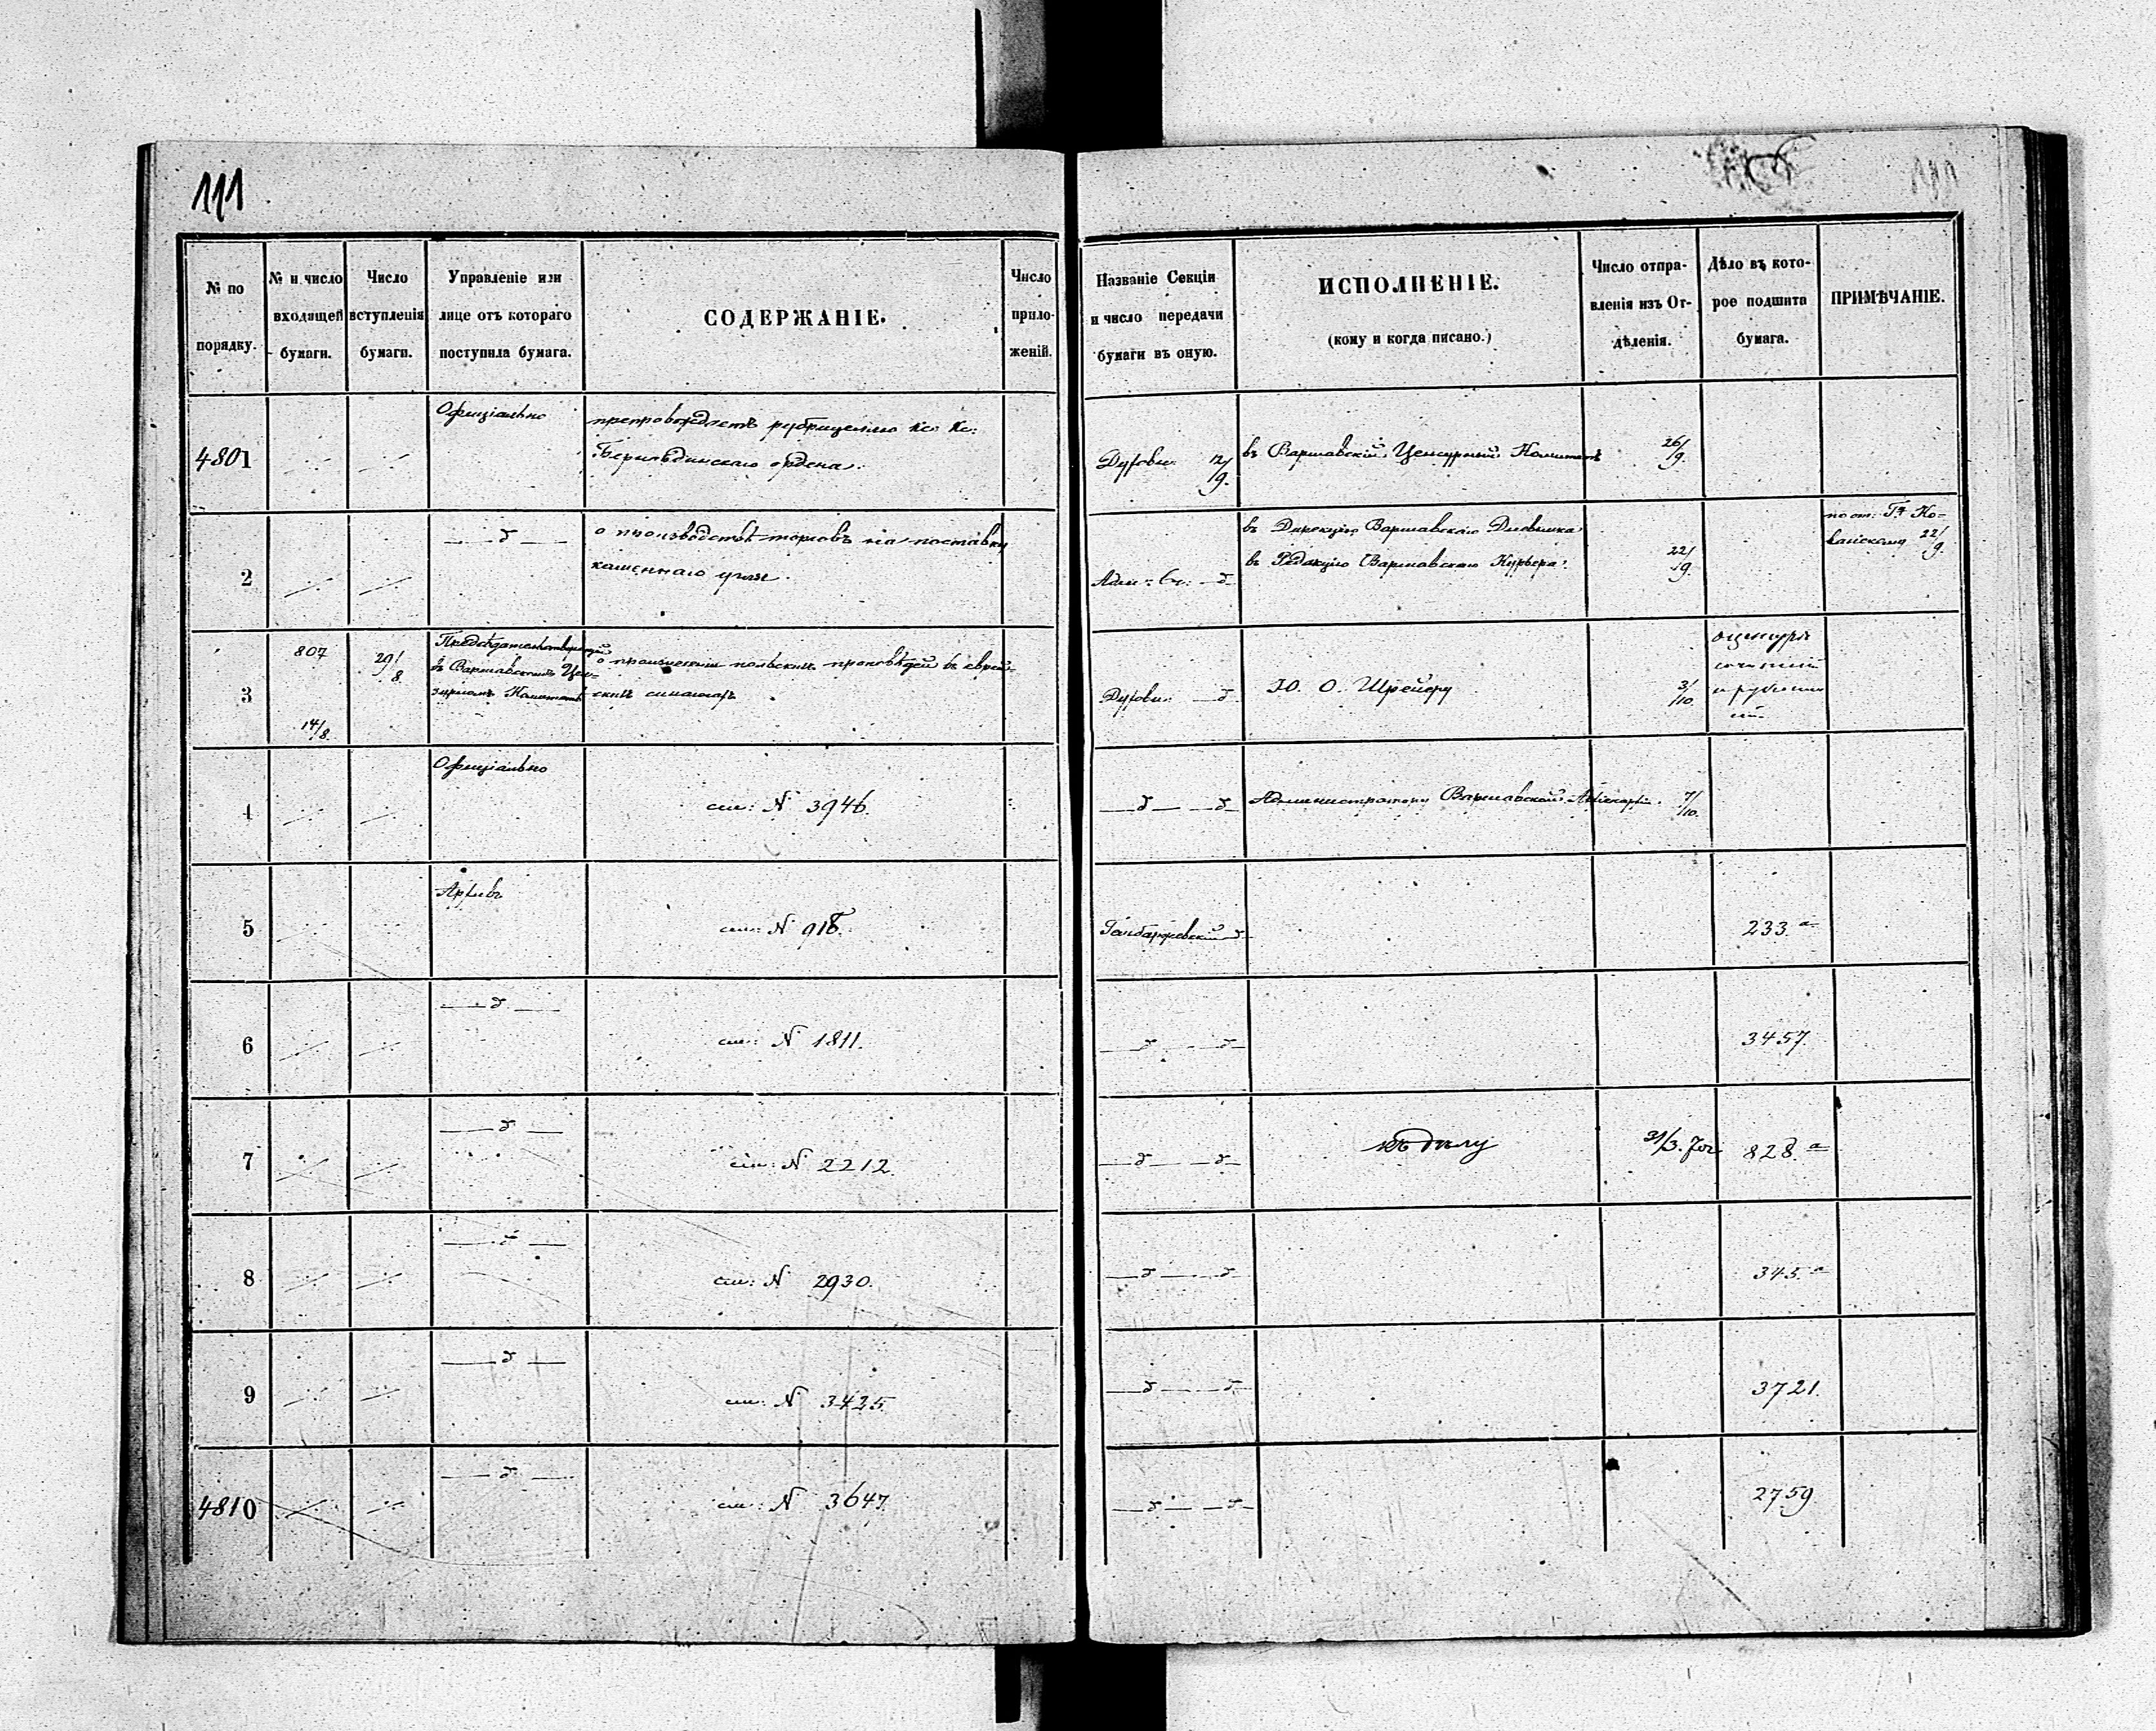 111
№ по порядку.
№ и число входящей бумаги.
Число вступленія бумаги.
Управленіе или лице отъ котораго поступила бумага.
СОДЕРЖАНІЕ.
Число приложеній.
Названіе Секціи и число передачи бумаги въ оную.
ИСПОЛНЕНІЕ.
(кому и когда писано.)
Число отправленія изъ Отдѣленія.
Дѣло въ которое подшита бумага.
ПРИМѢЧАНІЕ.
4801
Офиціально
препровождаетъ рубрицеллю Кс: Кс:
ордена.
Духовн. 12/9.
въ Варшавскій Ценсурный Комитетъ
26/9.
2
— д —
о производствѣ торговъ на поставку
каменнаго угля.
— д
въ Дирекцію Варшавскаго Дневника
въ Редакцію Варшавскаго Курьера.
22/9.
22/9.
3
807
14/8.
29/8
въ Варшавскомъ Цен-
зурномъ Комитетѣ
о произнесеніи польскихъ проповѣдей въ еврей-
скихъ синагогахъ
Духовн. — д
Ю. О. Шрейеру
3/10.
4
Офиціально
см: № 3946.
— д — — д
Администратору Варшавской Архіепархіи.
7/10.
5
Архивъ
см: № 918.
— д
233. а
6
— д —
см: № 1811.
— д — — д
3457.
7
— д —
см: № 2212.
— д — — д
къ дѣлу
31/3.
828. а
8
— д —
см: № 2930.
— д — — д
345. а
9
— д —
см: № 3425
— д — — д
3721.
4810
— д —
см: № 3647.
— д — — д
2759